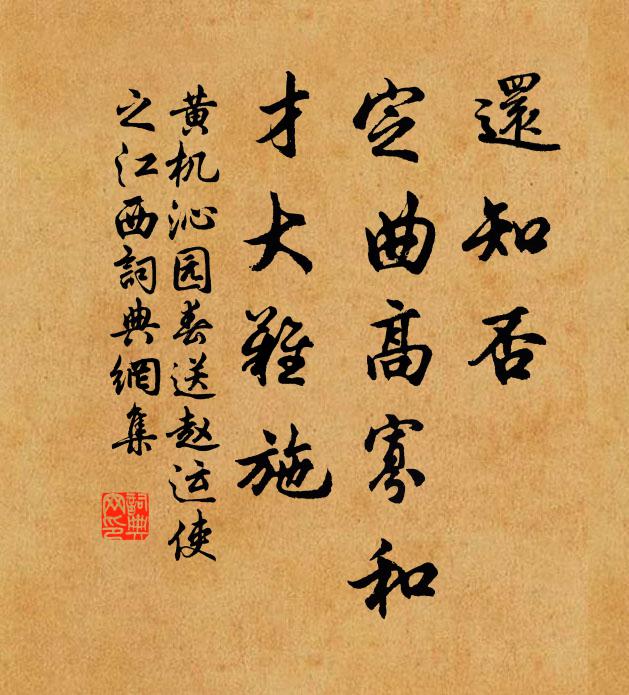 還知否
定曲高寡和
才大難施
黄机沁园春送赵运使
之江西詞典網集
詞典
网印